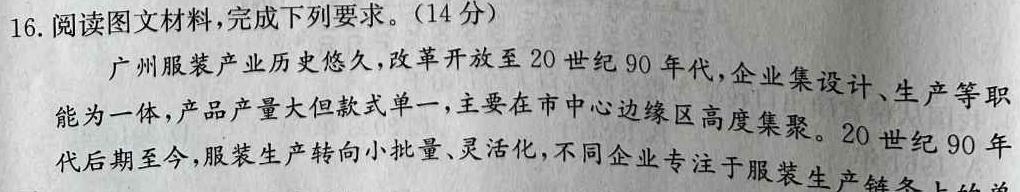 16. 阅读图文材料,完成下列要求。(14分)
广州服装产业历史悠久,改革开放至20世纪90年代,企业集设计、生产等职
能为一体,产品产量大但款式单一,主要在市中心边缘区高度集聚。20世纪90年
代后期至今,服装生产转向小批量、灵活化,不同企业专注于服装生产链条上的单